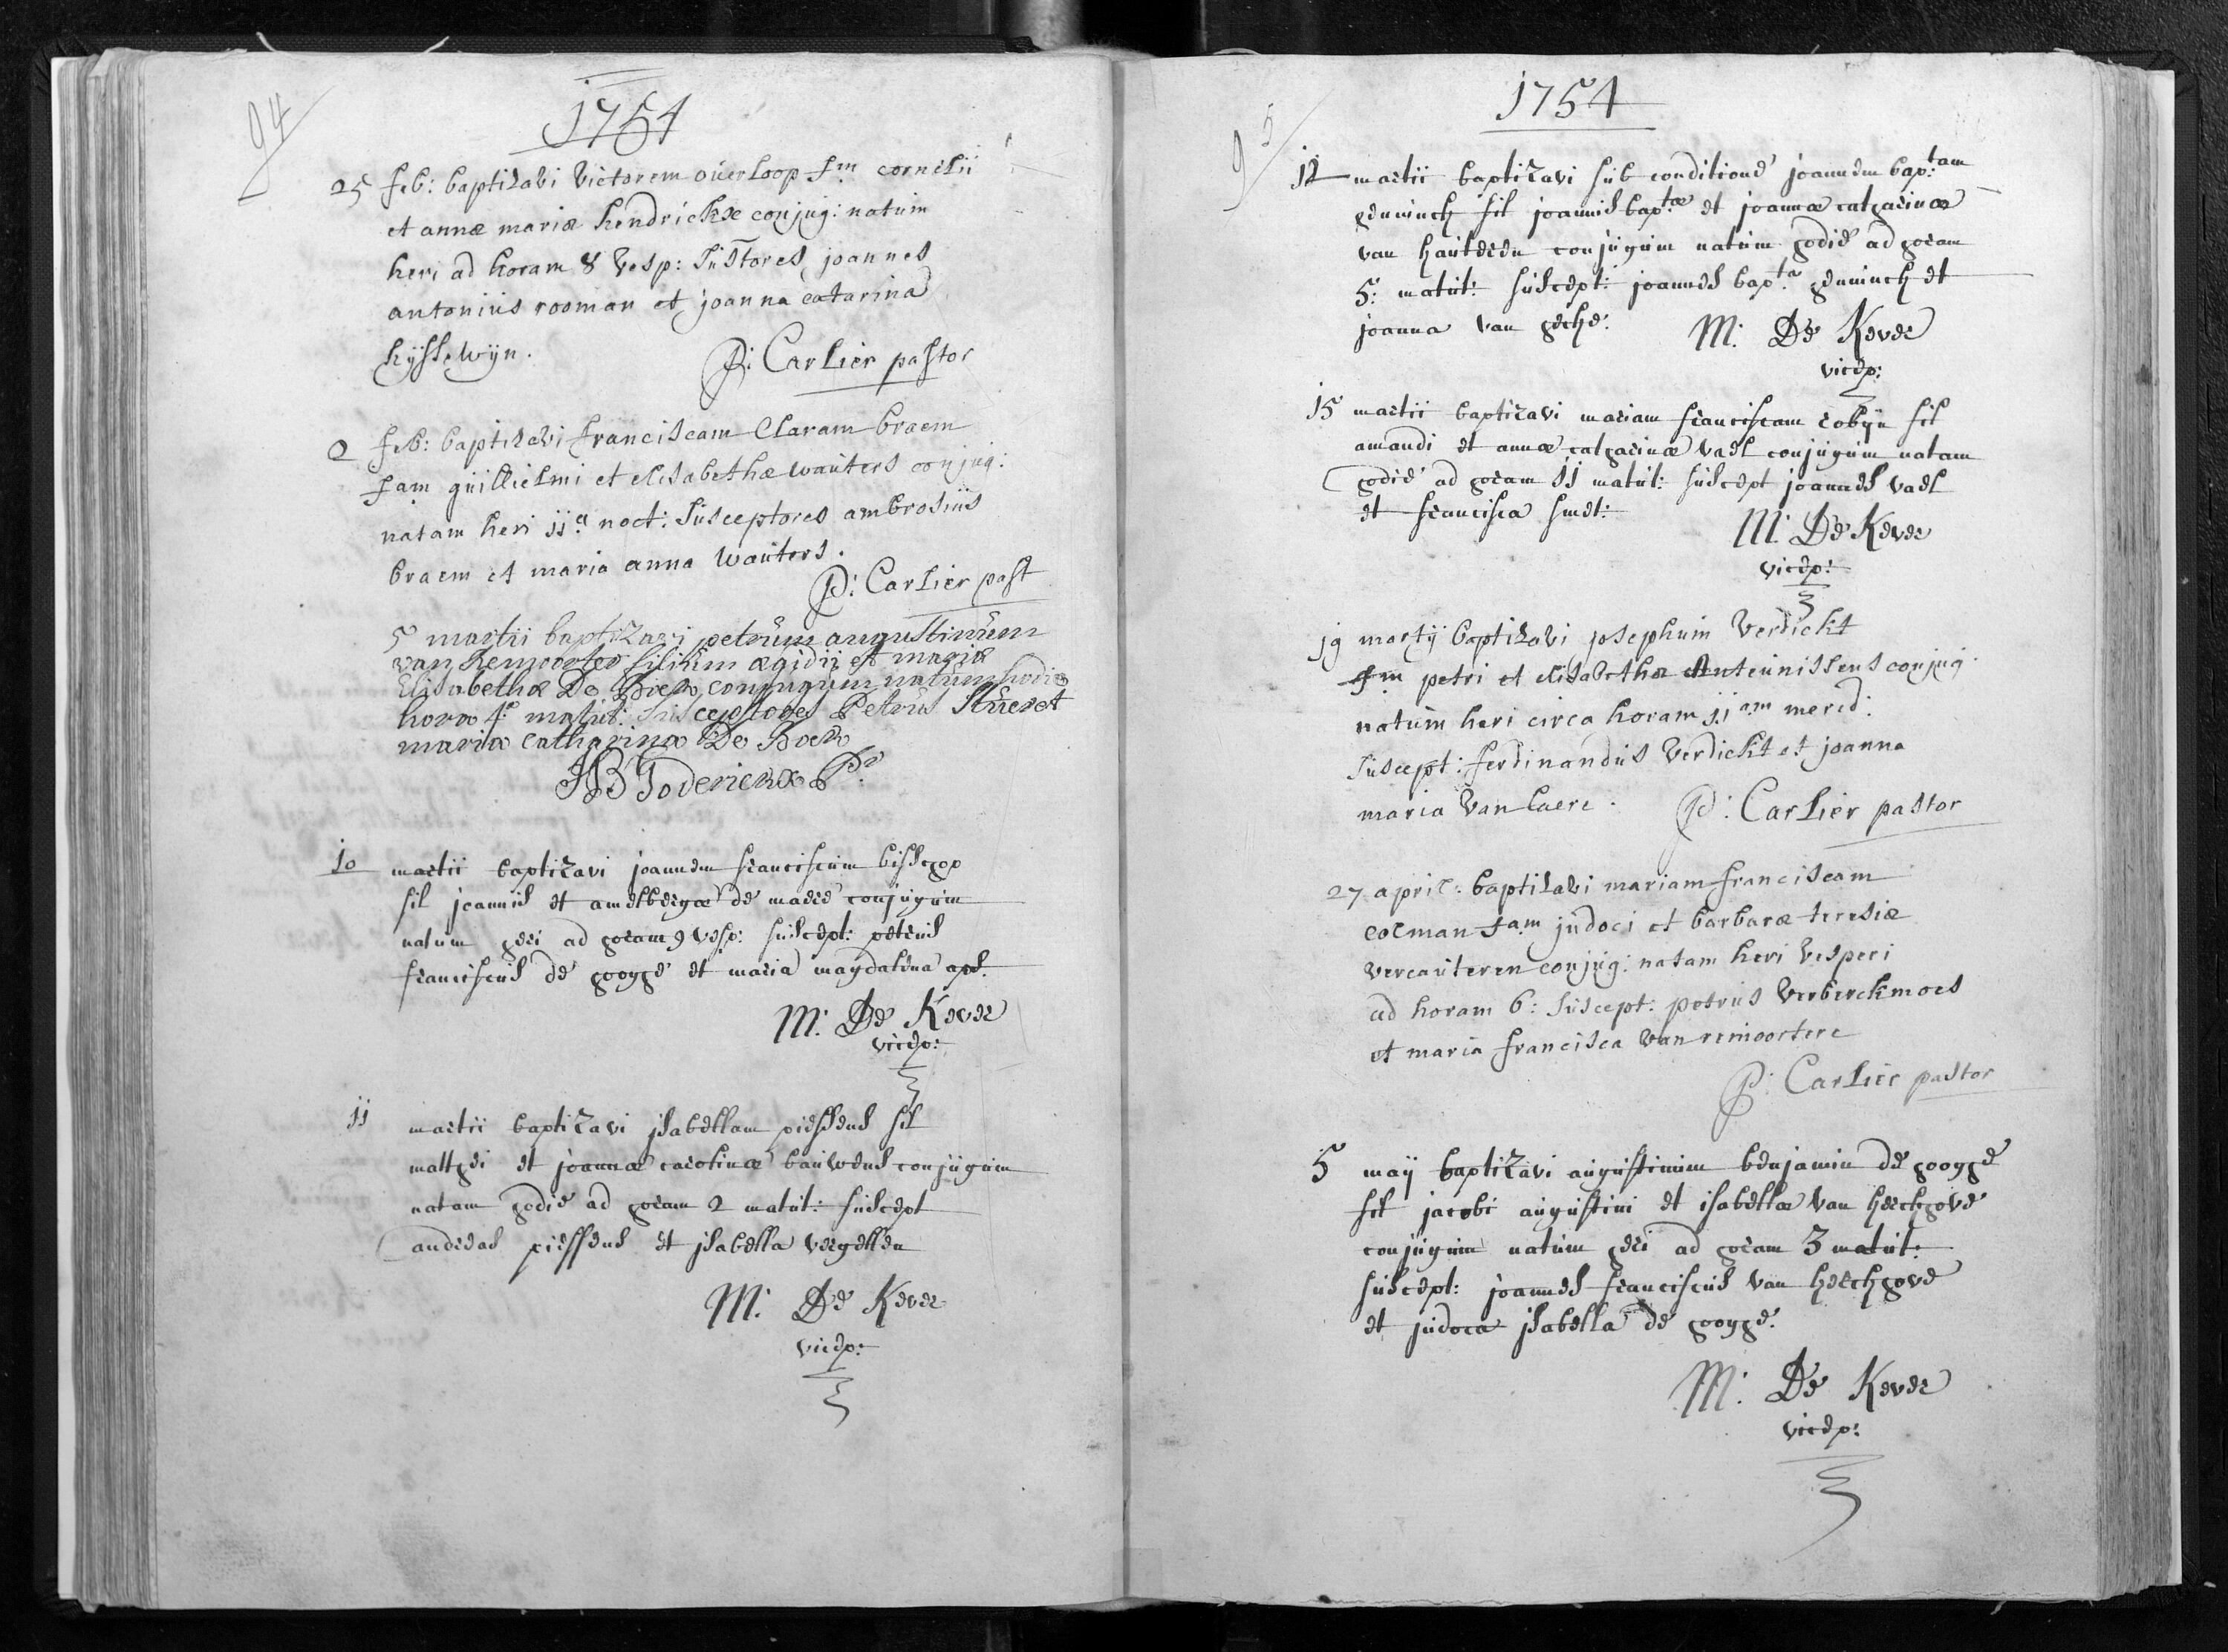 94
1754
25 feb: baptisavi victorem overloop f.m cornelii
et annæ mariæ hendrickx conjug: natum
heri ad horam 8 vesp: sustores joannes
antonius rooman et joanna catarina
hysselwyn.
P: Carlier pastor
2 feb: baptisavi franciscam Claram braem
fam guillielmi et elisabethæ wauters conjug:
natam heri jj.a noct: susceptores ambrosius
braem et maria anna wauters.
P: Carlier past
5 martii baptizavi petrum augustinum
van Remoorter filium ægidii et mariæ
Elisabethæ De Bock conjugum natum hodie
hora 4.a matut: susceptores Petrus Stuer et
maria Catharina De Bock
JB Foderiekx Pr
10 martii baptizavi joannem franciscum bisschop
fil joannis et amelbergæ de maere conjugum
natum heri ad horam 9 vesp: suscept: petrus
franciscus de hooghe et maria magdalena aps.
M: De Kever
vicep:
jj martii baptizavi jsabellam piessens fil
matthei et joannæ carolinæ bauwens conjugum
natam hodie ad horam 2 matut: suscept
andreas piessens et jsabella verhellen
M: De Kever
vicep:
95
1754
12 martii baptizavi sub conditione joannem bap:tam
heninck fil joannis bap:tæ et joannæ catharinæ
van hauteren conjugum natum hodie ad horam
5: matut: suscept: joannes bap:ta heninck et
joanna van hecke.
M: De Kever
vicep:
15 martii baptizavi mariam franciscam robijn fil
amandi et annæ catharinæ vael conjugum natam
hodie ad horam jj matut: suscept joannes vael
et francisca smet:
M: De Kever
vicep:
j9 martij baptisavi josephum verdickt
f.m petri et elisabethæ Anteunissens conjug.
natum heri circa horam jj am merid:
suscept: ferdinandus verdickt et joanna
maria van laere.
P: Carlier pastor
27 april: baptisavi mariam franciscam
colman fam judoci et barbaræ teresiæ
vercauteren conjug: natam heri vesperi
ad horam 6: suscept: petrus verberckmoes
et maria francisca van remoortere
P: Carlier pastor
5 maij baptizavi augustinum benjamin de hooghe
fil jacobi augustini et isabellæ van herckhove
conjugum natum heri ad horam 3 matut:
suscept: joannes franciscus van herckhove
et judoca jsabella de hooghe.
M: De Kever
vicep: